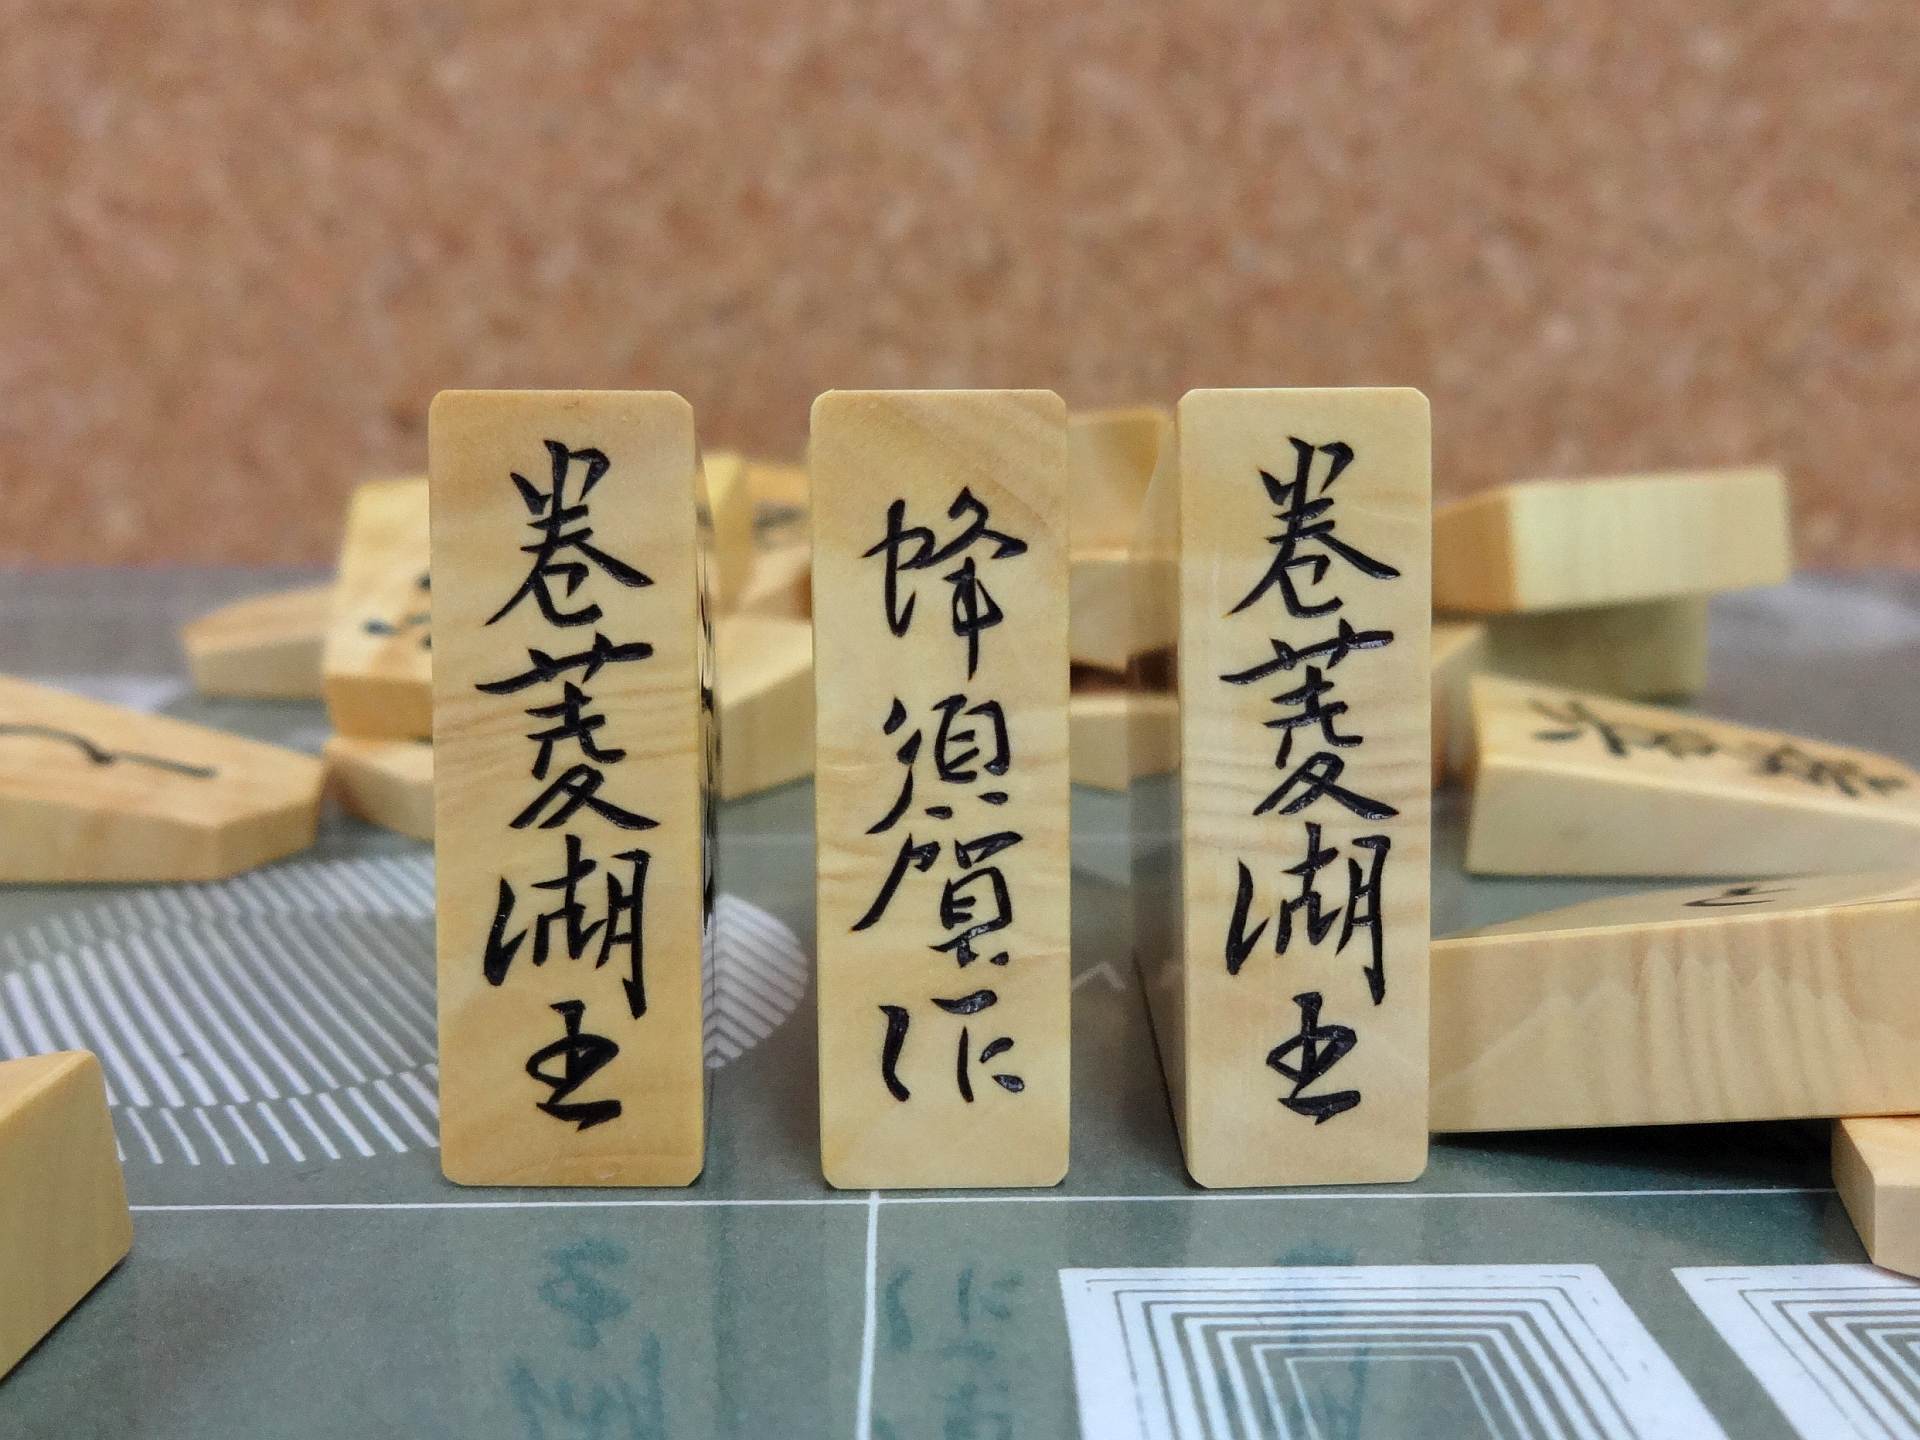 巻菱湖書
蜂須賀作
巻菱湖書